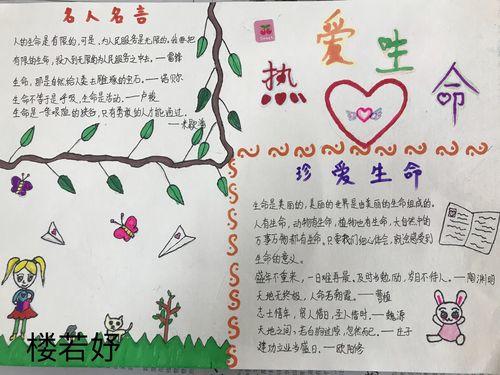 名人名言
人的生命是有限的,可是,为人民服务是无限的,我要把
有限的生命,投入到无限的为人民服务之中去。——雷锋
生命,那是自然给人类去雕琢的宝石。——诺贝尔
生命不等于是呼吸,生命是活动。——卢梭
生命是一条艰险的峡谷,只有勇敢的人才能通过。
——米歇潘
热爱生命
珍爱生命
生命是美丽的,美丽的世界是由美丽的生命组成的。
人有生命,动物有生命,植物也有生命,大自然中的
万事万物都有生命。只要我们细心体会,就能感受到
生命的意义。
盛年不重来,一日难再晨。及时当勉励,岁月不待人。——陶渊明
天地无终极,人命若朝霜。——曹植
志士惜年,贤人惜日,圣人惜时。——魏源
天地之间,若白驹过隙,忽然而已。——庄子
建功立业当盛日。——欧阳修
楼若妤